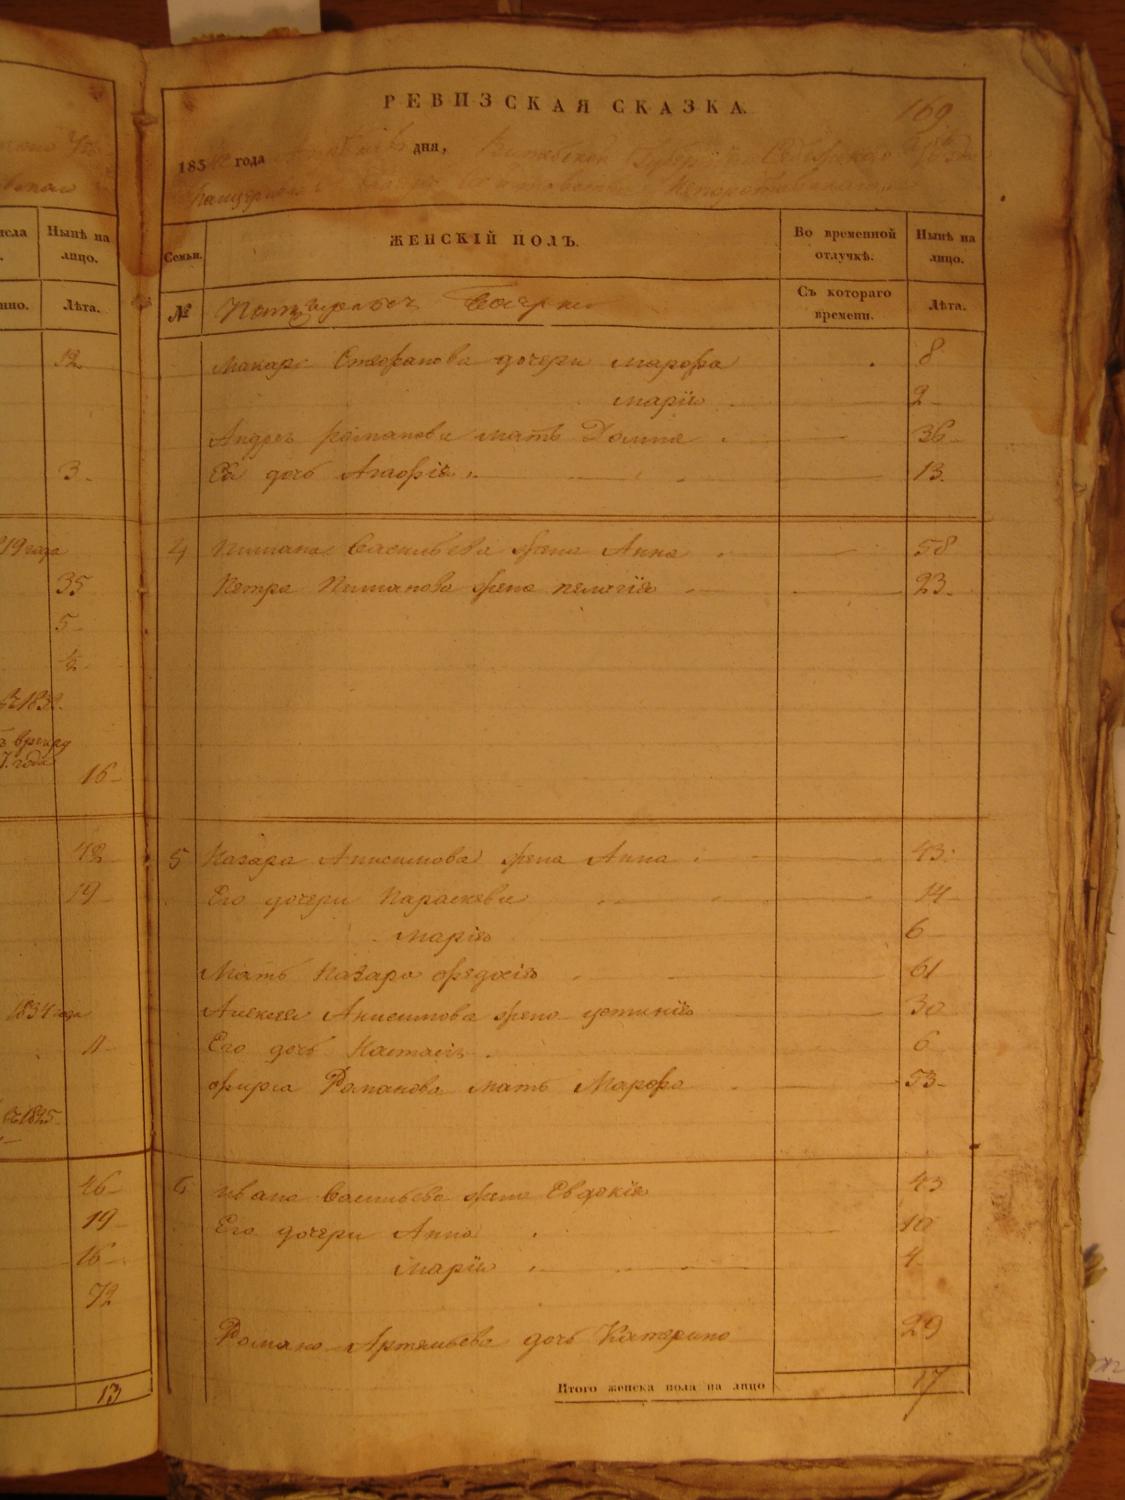 РЕВИЗСКАЯ СКАЗКА.
169
185 года дня, Витебской Губернии
Семьи.
ЖЕНСКІЙ ПОЛЪ.
Во временной отлучкѣ.
Нынѣ на лицо.
№
Съ котораго времени.
Лѣта.
Макара Стефанова дочери Марфа 8
Марія 2
Андрея Романова мать Домна 36
Ея дочь Агафія 13
4 Пимана Васильева жена Анна 58
Петра Пиманова жена Пелагія 23
5 Назара Анисимова жена Анна 43
Его дочери Параскева 14
Марія 6
Мать Назара Федосія 61
Алексея Анисимова жена Устинія 30
Его дочь Настасія 6
Фирса Романова мать Марфа 53
6 Ивана Васильева жена Евдокія 43
Его дочери Анна 10
Марія 4
Романа Артемьева дочь Катерина 29
Итого женска пола на лицо 17
Нынѣ на лицо.
Лѣта.
12
3
19 года
35
5
1/2
16
42
19
1834 года
11
46
19
16
72
13